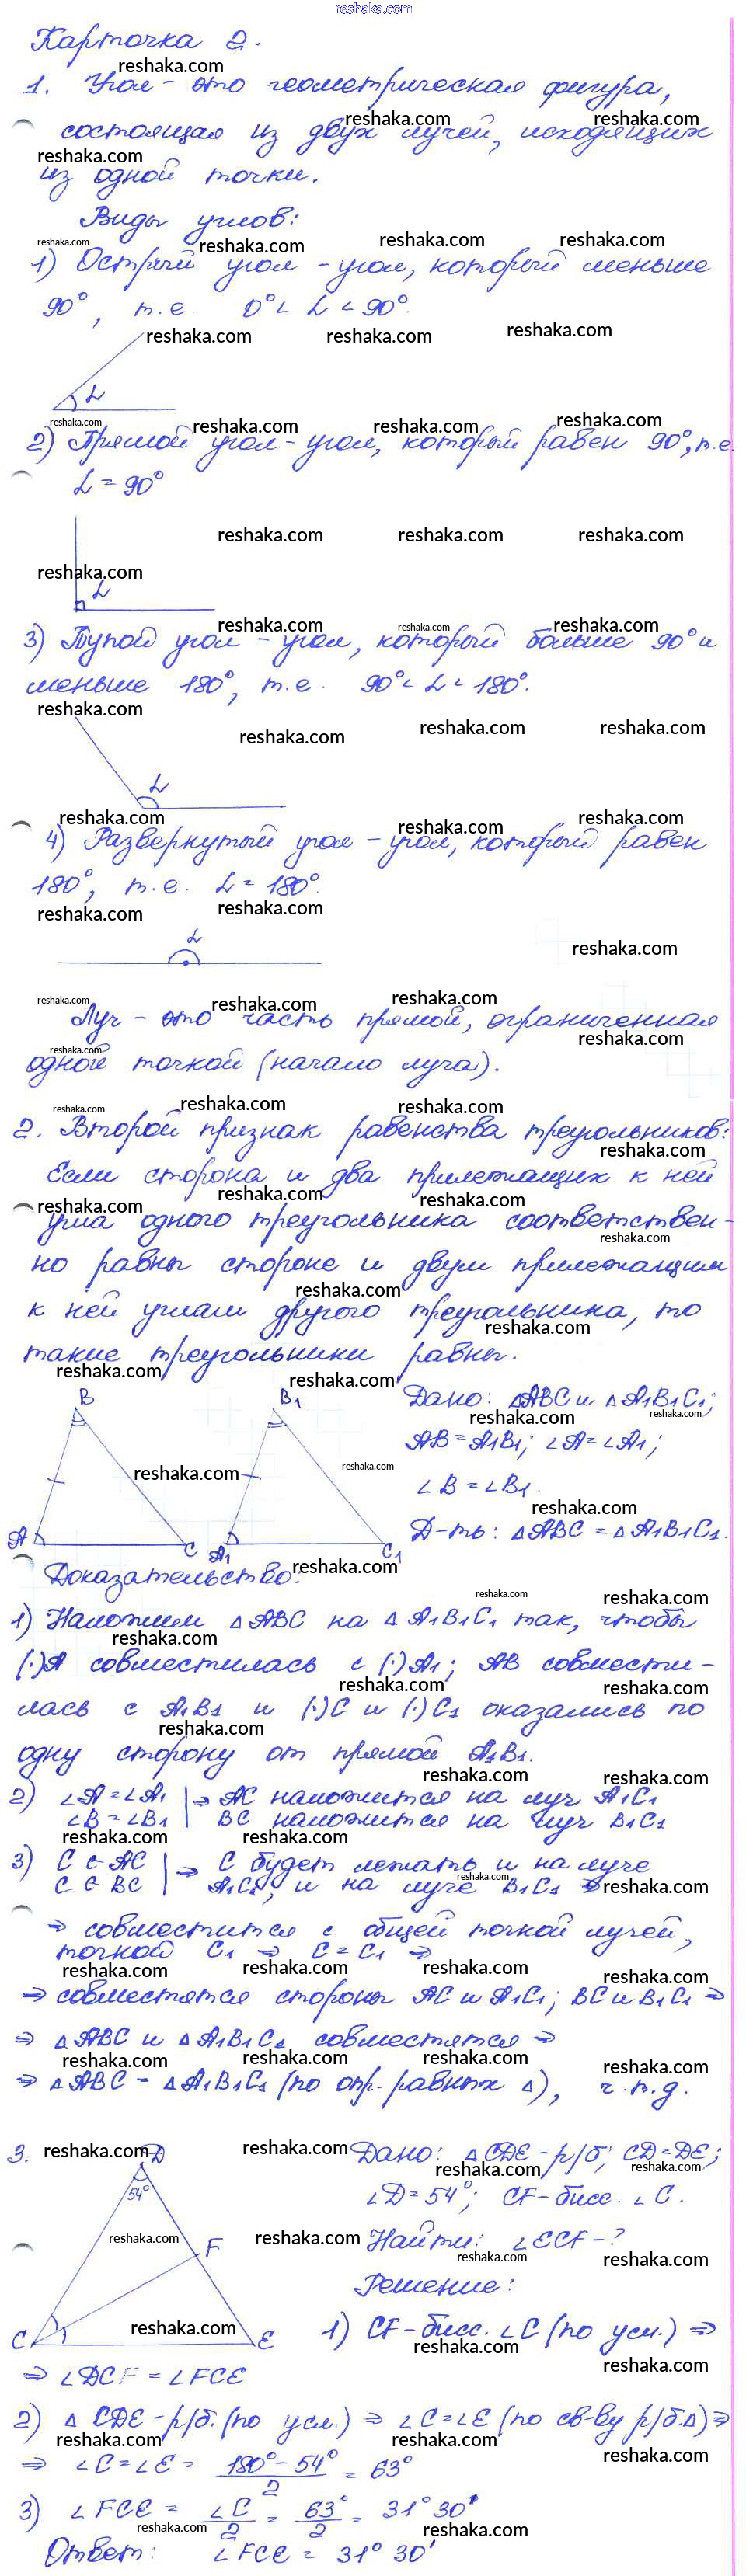 reshaka.com
Карточка 2.
1. Угол - это геометрическая фигура,
состоящая из двух лучей, исходящих
из одной точки.
Виды углов:
1) Острый угол - угол, который меньше
90°, т.е. 0° < α < 90°.
α
2) Прямой угол - угол, который равен 90°, т.е.
α = 90°
α
3) Тупой угол - угол, который больше 90° и
меньше 180°, т.е. 90° < α < 180°.
α
4) Развернутый угол - угол, который равен
180°, т.е. α = 180°.
α
Луч - это часть прямой, ограниченная
одной точкой (начало луча).
2. Второй признак равенства треугольников:
Если сторона и два прилежащих к ней
угла одного треугольника соответствен-
но равны стороне и двум прилежащим
к ней углам другого треугольника, то
такие треугольники равны.
B B1 A C A1 C1
Дано: △ABC и △A1B1C1;
AB = A1B1; ∠A = ∠A1;
∠B = ∠B1.
Д-ть: △ABC = △A1B1C1.
Доказательство:
1) Наложим △ABC на △A1B1C1 так, чтобы
(·)A совместилась с (·)A1; AB совмести-
лась с A1B1 и (·)C и (·)C1 оказались по
одну сторону от прямой A1B1.
2) ∠A = ∠A1 | ⇒ AC наложится на луч A1C1
∠B = ∠B1 | BC наложится на луч B1C1
3) C ∈ AC | ⇒ C будет лежать и на луче
C ∈ BC | A1C1, и на луче B1C1 ⇒
⇒ совместится с общей точкой лучей,
точкой C1 ⇒ C = C1 ⇒
⇒ совместятся стороны AC и A1C1; BC и B1C1 ⇒
⇒ △ABC и △A1B1C1 совместятся ⇒
⇒ △ABC = △A1B1C1 (по опр. равных △), ч.т.д.
3.
D 54° F C E
Дано: △CDE - р/б; CD = DE;
∠D = 54°; CF - бисс. ∠C.
Найти: ∠ECF - ?
Решение:
1) CF - бисс. ∠C (по усл.) ⇒
⇒ ∠DCF = ∠FCE
2) △CDE - р/б. (по усл.) ⇒ ∠C = ∠E (по св-ву р/б.△) ⇒
⇒ ∠C = ∠E = (180° - 54°)/2 = 63°
3) ∠FCE = ∠C/2 = 63°/2 = 31° 30'
Ответ: ∠FCE = 31° 30'